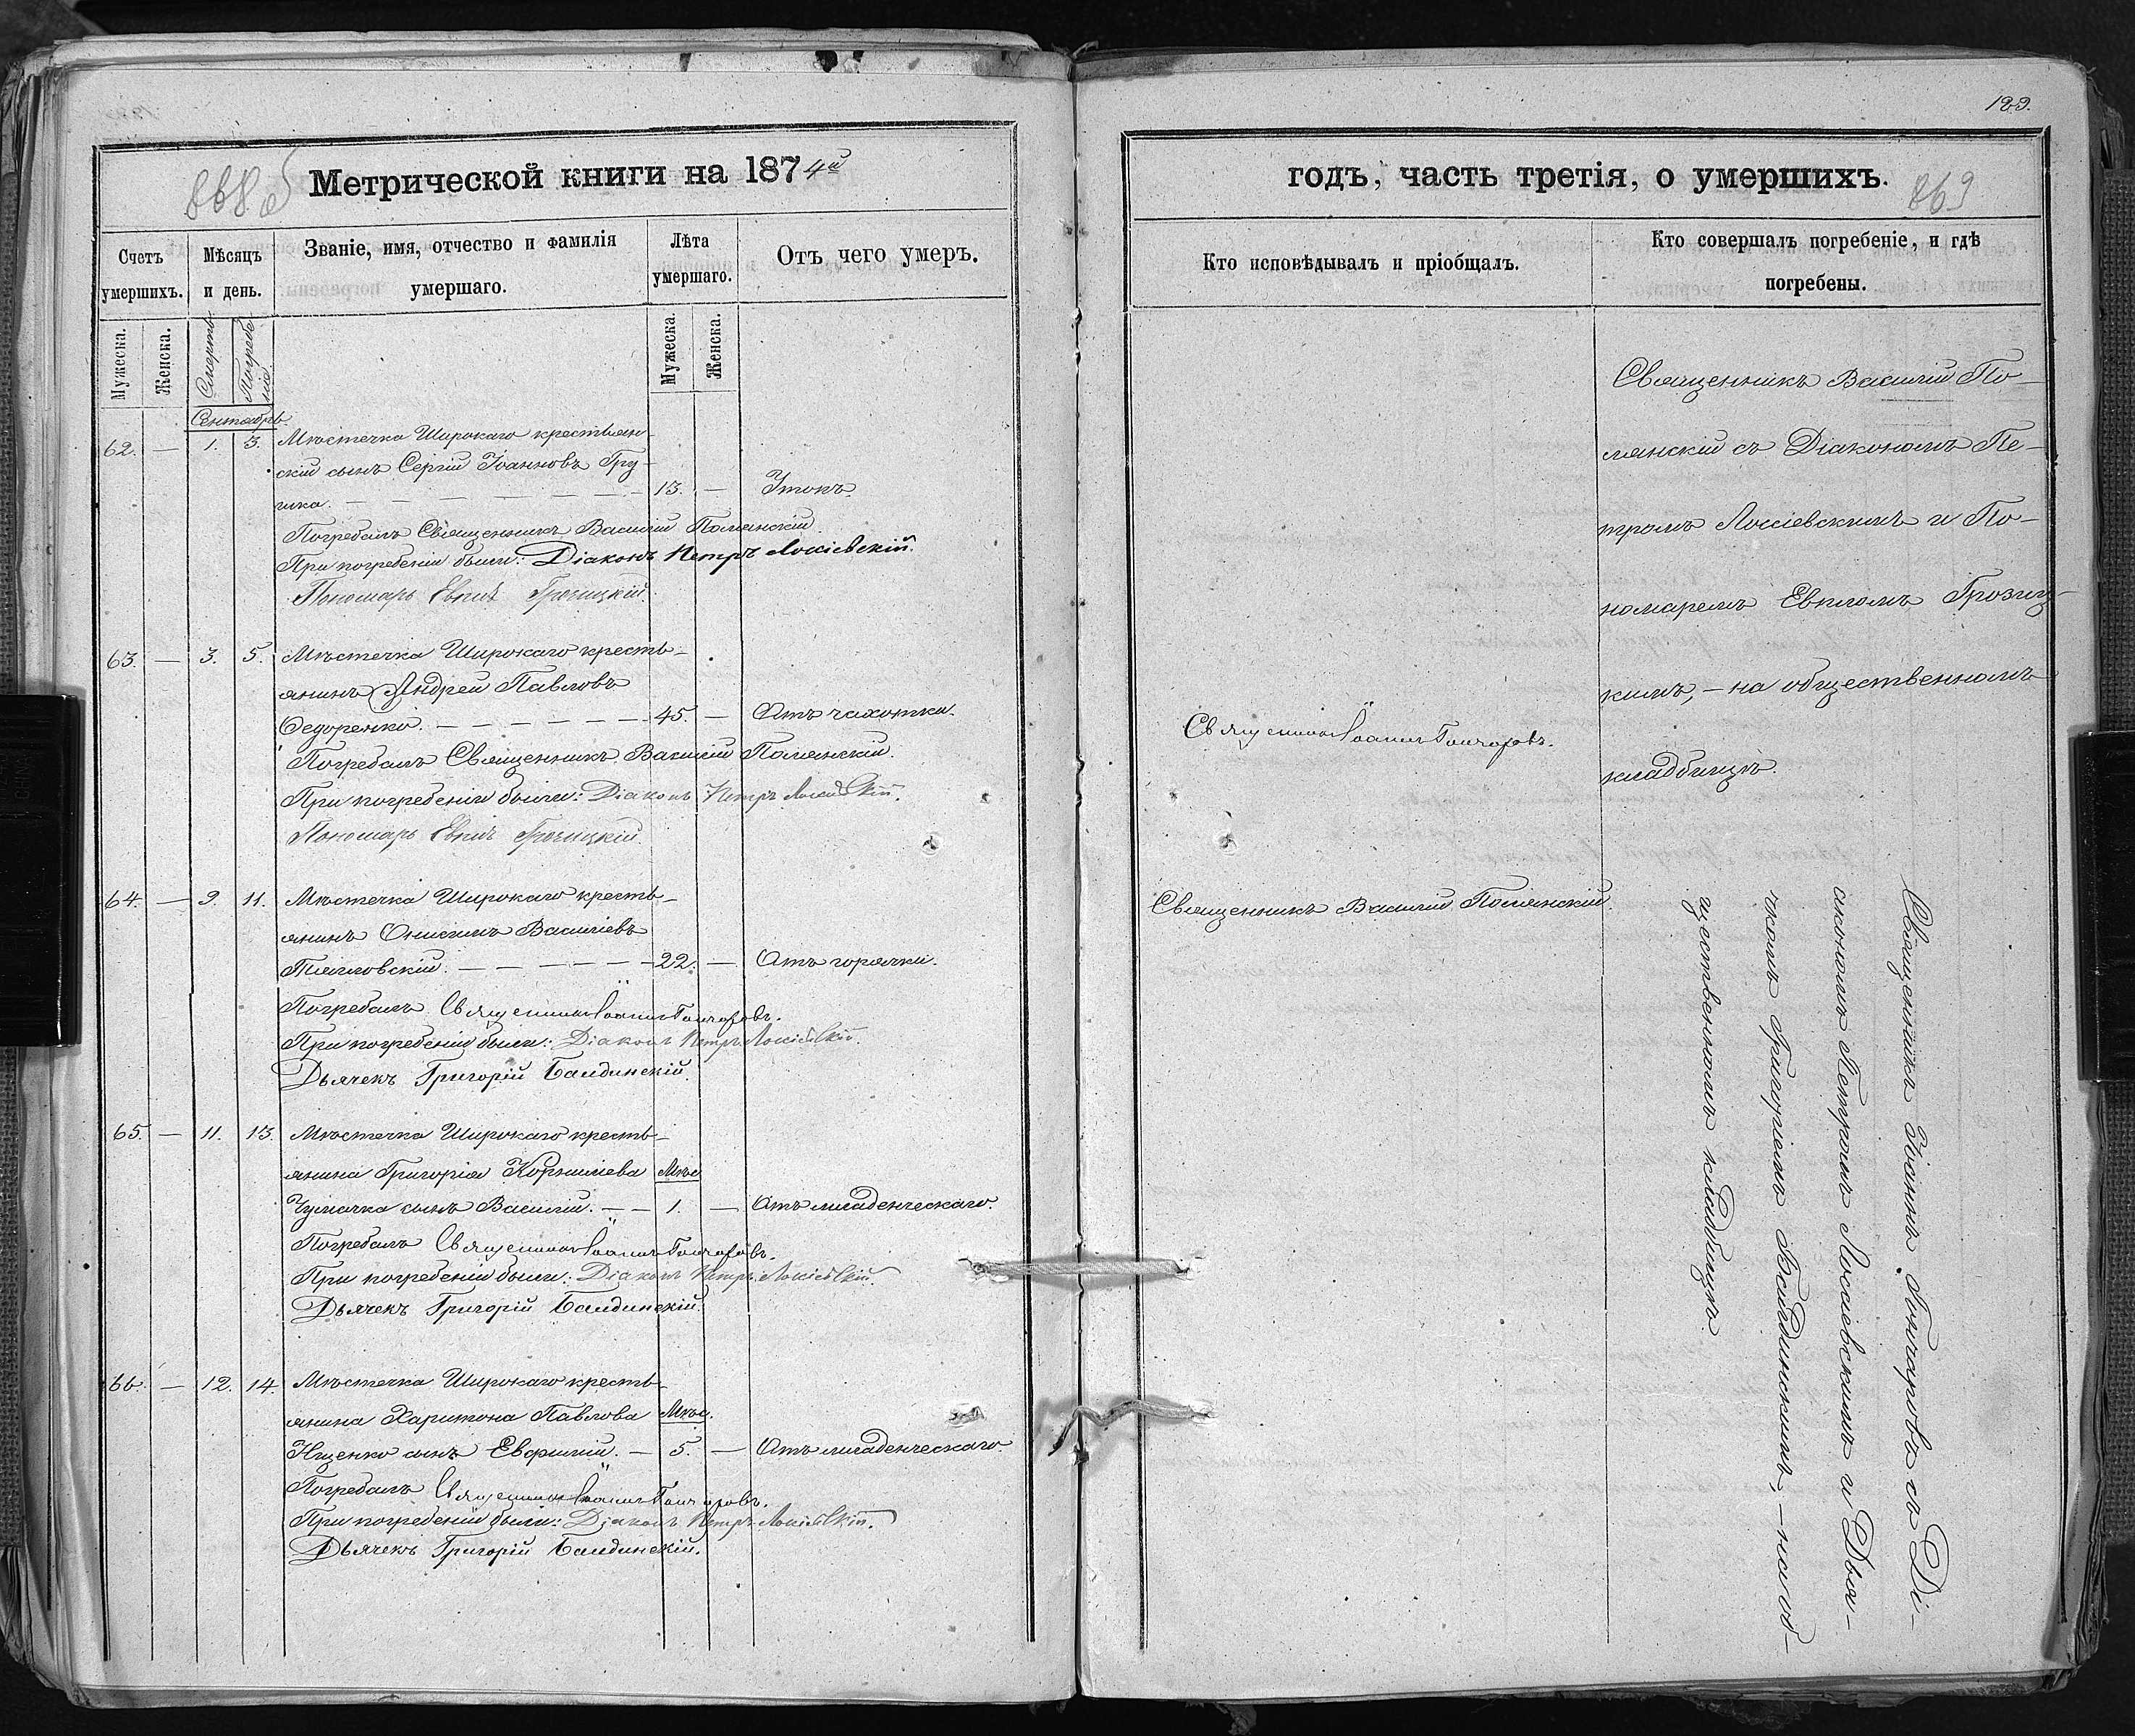 868 об
Метрической книги на 1874й
Счетъ умершихъ.
Мѣсяцъ и день.
Званіе, имя, отчество и фамилія умершаго.
Лѣта умершаго.
Отъ чего умеръ.
Мужеска.
Женска.
Смерть.
Погребеніе.
Мужеска.
Женска.
Сентябрь.
62. — 1. 3. Мѣстечка Широкаго крестьян-
скій сынъ Сергій Іоанновъ Гру-
13. — Утонъ.
Погребалъ Священникъ Василій Полянскій
При погребеніи были: Діаконъ Петръ Лосіевскій.
Пономарь Евплъ Грозицкій.
63. — 3. 5. Мѣстечка Широкаго кресть-
янинъ Андрей Павловъ
Ѳедоренко. — 45. — Отъ чахотки.
Погребалъ Священникъ Василій Полянскій.
При погребеніи были: Діаконъ Петръ Лосіевскій.
Пономарь Евплъ Грозицкій.
64. — 9. 11. Мѣстечка Широкаго кресть-
янинъ Онисимъ Василіевъ
22. — Отъ горячки.
Погребалъ Священникъ Іоаннъ Гончаровъ.
При погребеніи были: Діаконъ Петръ Лосіевскій.
Дьячекъ Григорій Балдинскій.
65. — 11. 13. Мѣстечка Широкаго кресть-
янина Григорія Корнилиева Мѣс.
Чумачка сынъ Василій. — 1. — Отъ младенческаго.
Погребалъ Священникъ Іоаннъ Гончаровъ.
При погребеніи были: Діаконъ Петръ Лосіевскій.
Дьячекъ Григорій Балдинскій.
66. — 12. 14. Мѣстечка Широкаго кресть-
янина Харитона Павлова Мѣс.
Ищенко сынъ Евфимій. — 5. — Отъ младенческаго.
Погребалъ Священникъ Іоаннъ Гончаровъ.
При погребеніи были: Діаконъ Петръ Лосіевскій.
Дьячекъ Григорій Балдинскій.
129.
годъ, часть третія, о умершихъ.
869
Кто исповѣдывалъ и пріобщалъ.
Кто совершалъ погребеніе, и гдѣ
погребены.
Священникъ Василій По-
лянскій съ Діакономъ Пе-
тромъ Лосіевскимъ и По-
номаремъ Евпломъ Грозиц-
кимъ, — на общественномъ
кладбищѣ.
Священникъ Іоаннъ Гончаровъ.
Священникъ Василій Полянскій
Священникъ Іоаннъ Гончаровъ съ Ді-
акономъ Петромъ Лосіевскимъ и Дья-
чкомъ Григоріемъ Балдинскимъ, — на об-
щественномъ кладбищѣ.